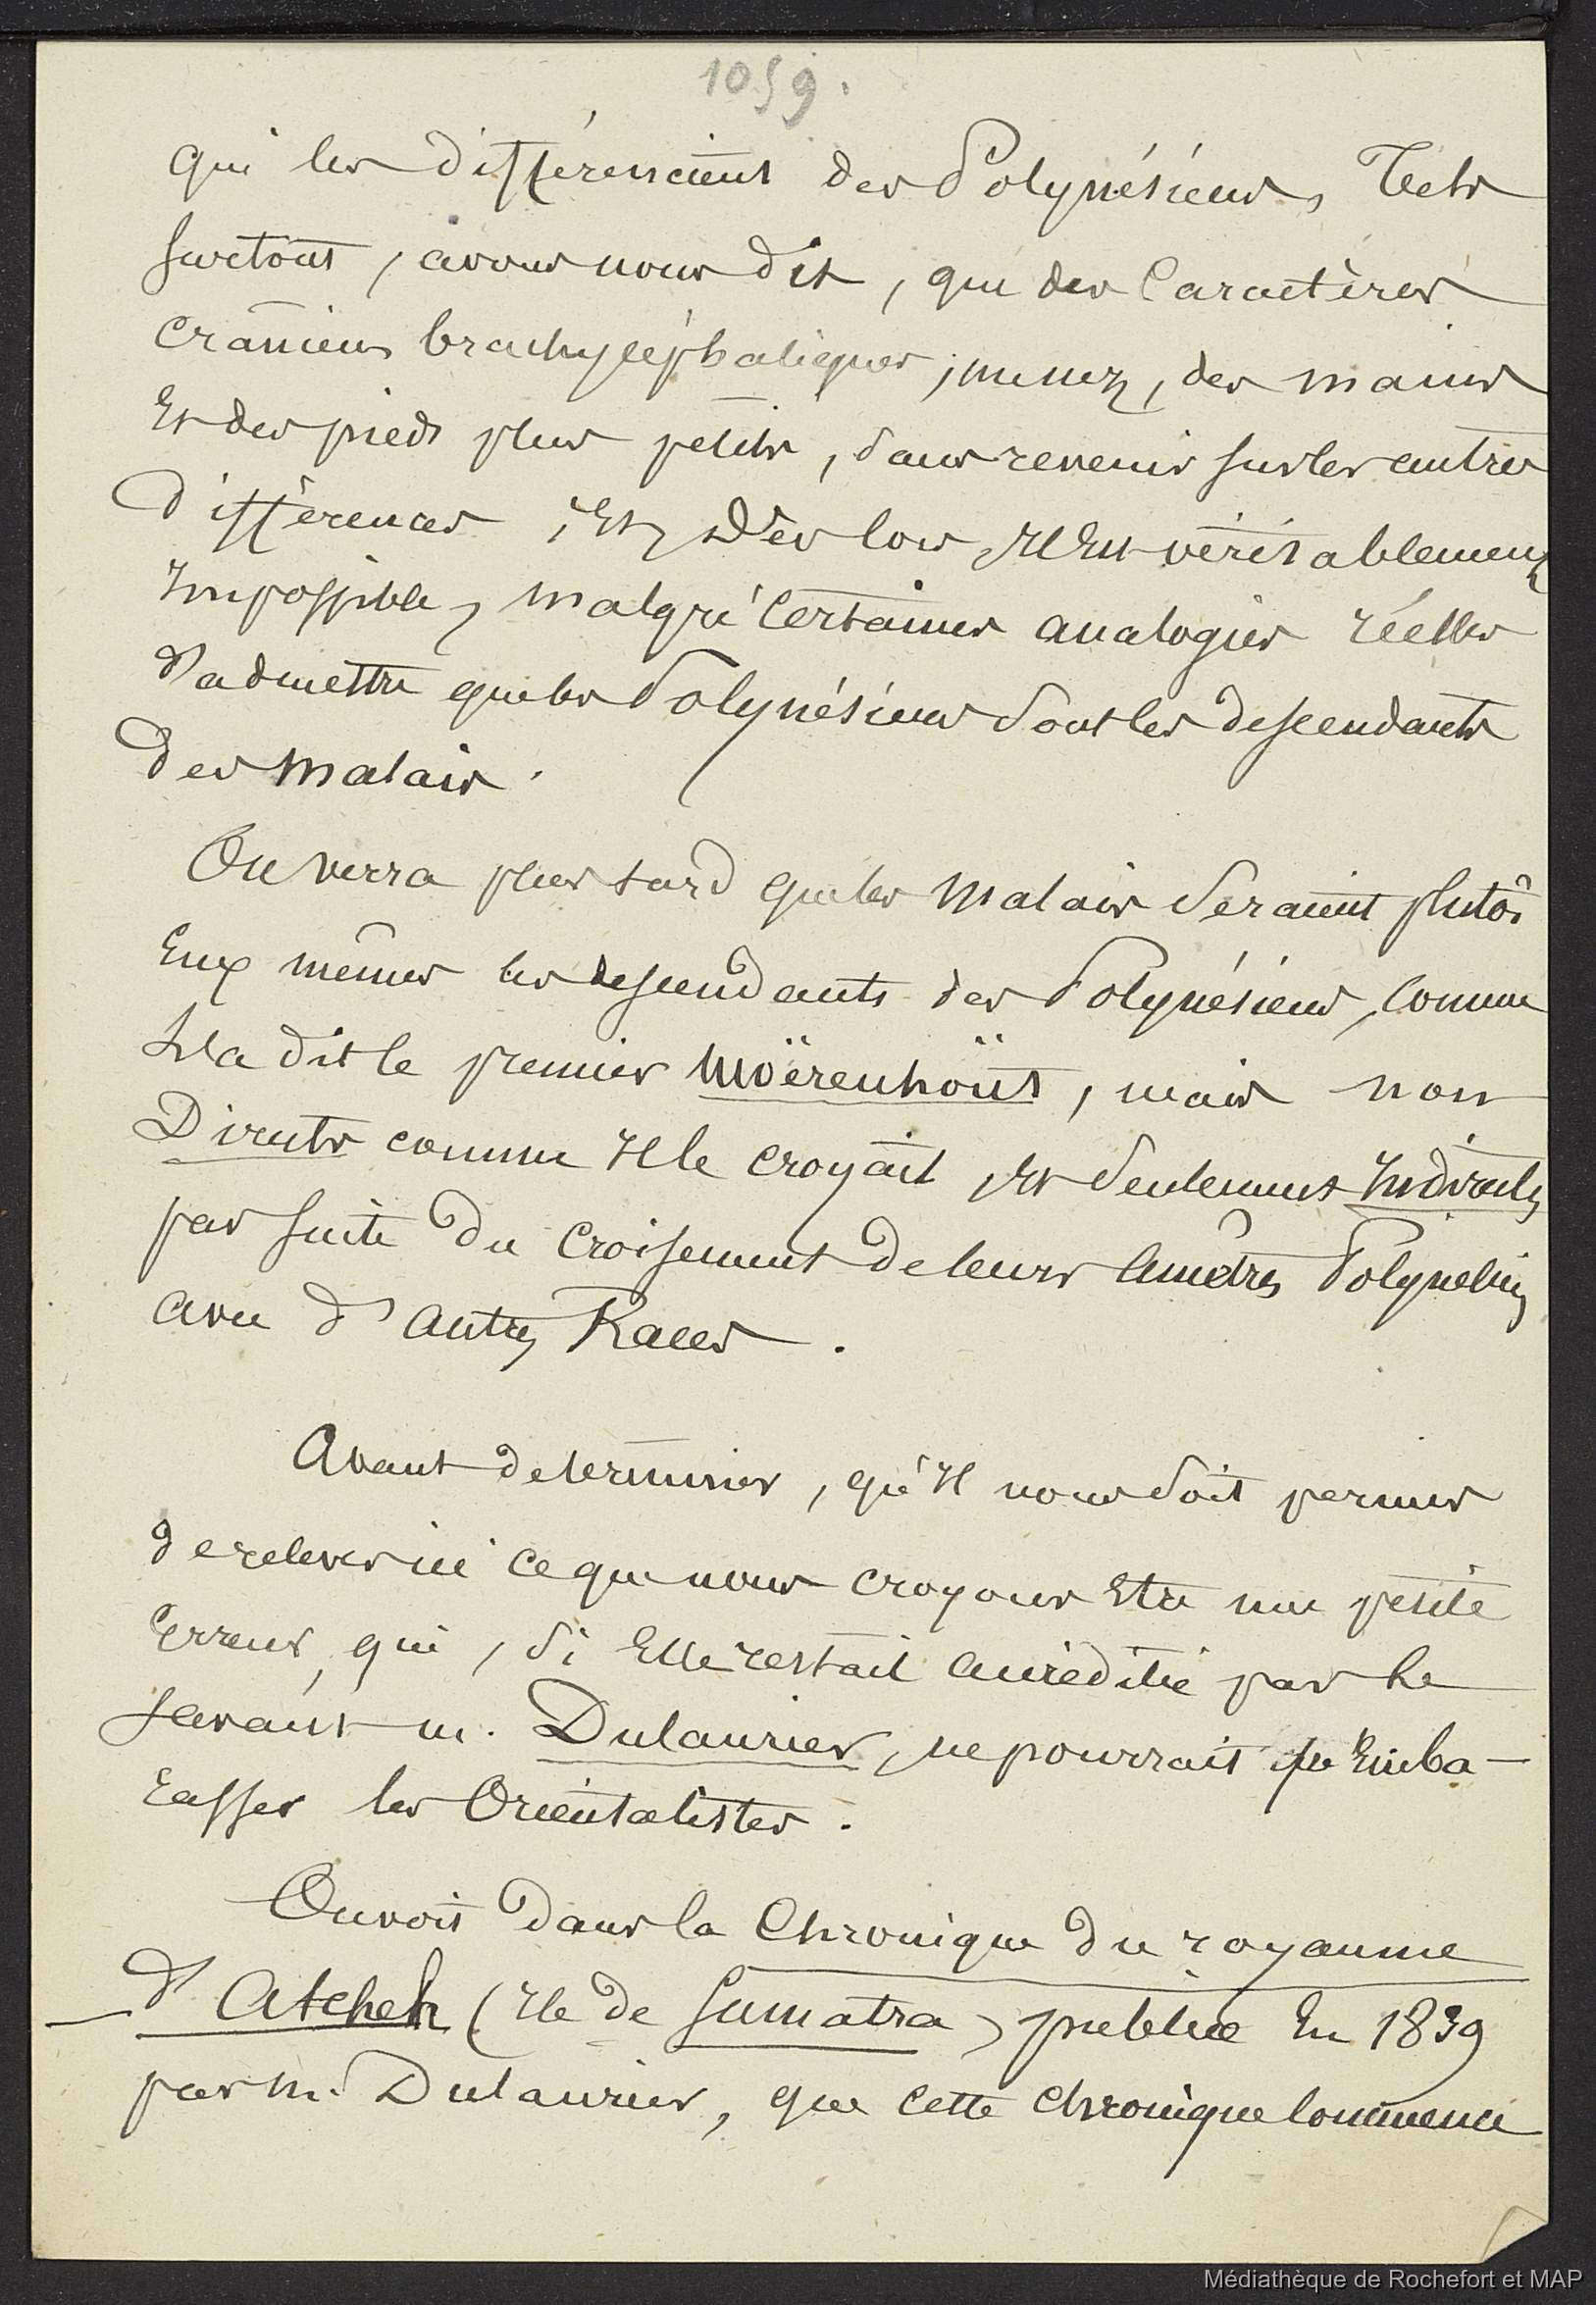 1059.
qui les différencient des Polynésiens, tels
surtout, avons nous dit, que des caractères
crâniens brachycéphaliques, un nez, des mains
et des pieds plus petits, sans revenir sur les autres
différences, et, dès lors, il est véritablement
impossible, malgré certaines analogies réelles
d'admettre que les Polynésiens sont les descendants
des Malais.
On verra plus tard que les Malais seraient plutôt
eux mêmes les descendants des Polynésiens, comme
l'a dit le premier Moërenhoüt, mais non
Directs comme il le croyait, et seulement Indirects
par suite du croisement de leurs ancêtres Polynésiens
avec d'autres Races.
Avant de terminer, qu'il nous soit permis
de relever ici ce que nous croyons être une petite
erreur, qui, si elle restait accréditée par le
savant M. Dulaurier, ne pourrait qu'emba-
rasser les Orientalistes.
On voit dans la Chronique du royaume
d'Atcheh (île de Sumatra) publiée en 1839
par M. Dulaurier, que cette chronique commence
Médiathèque de Rochefort et MAP